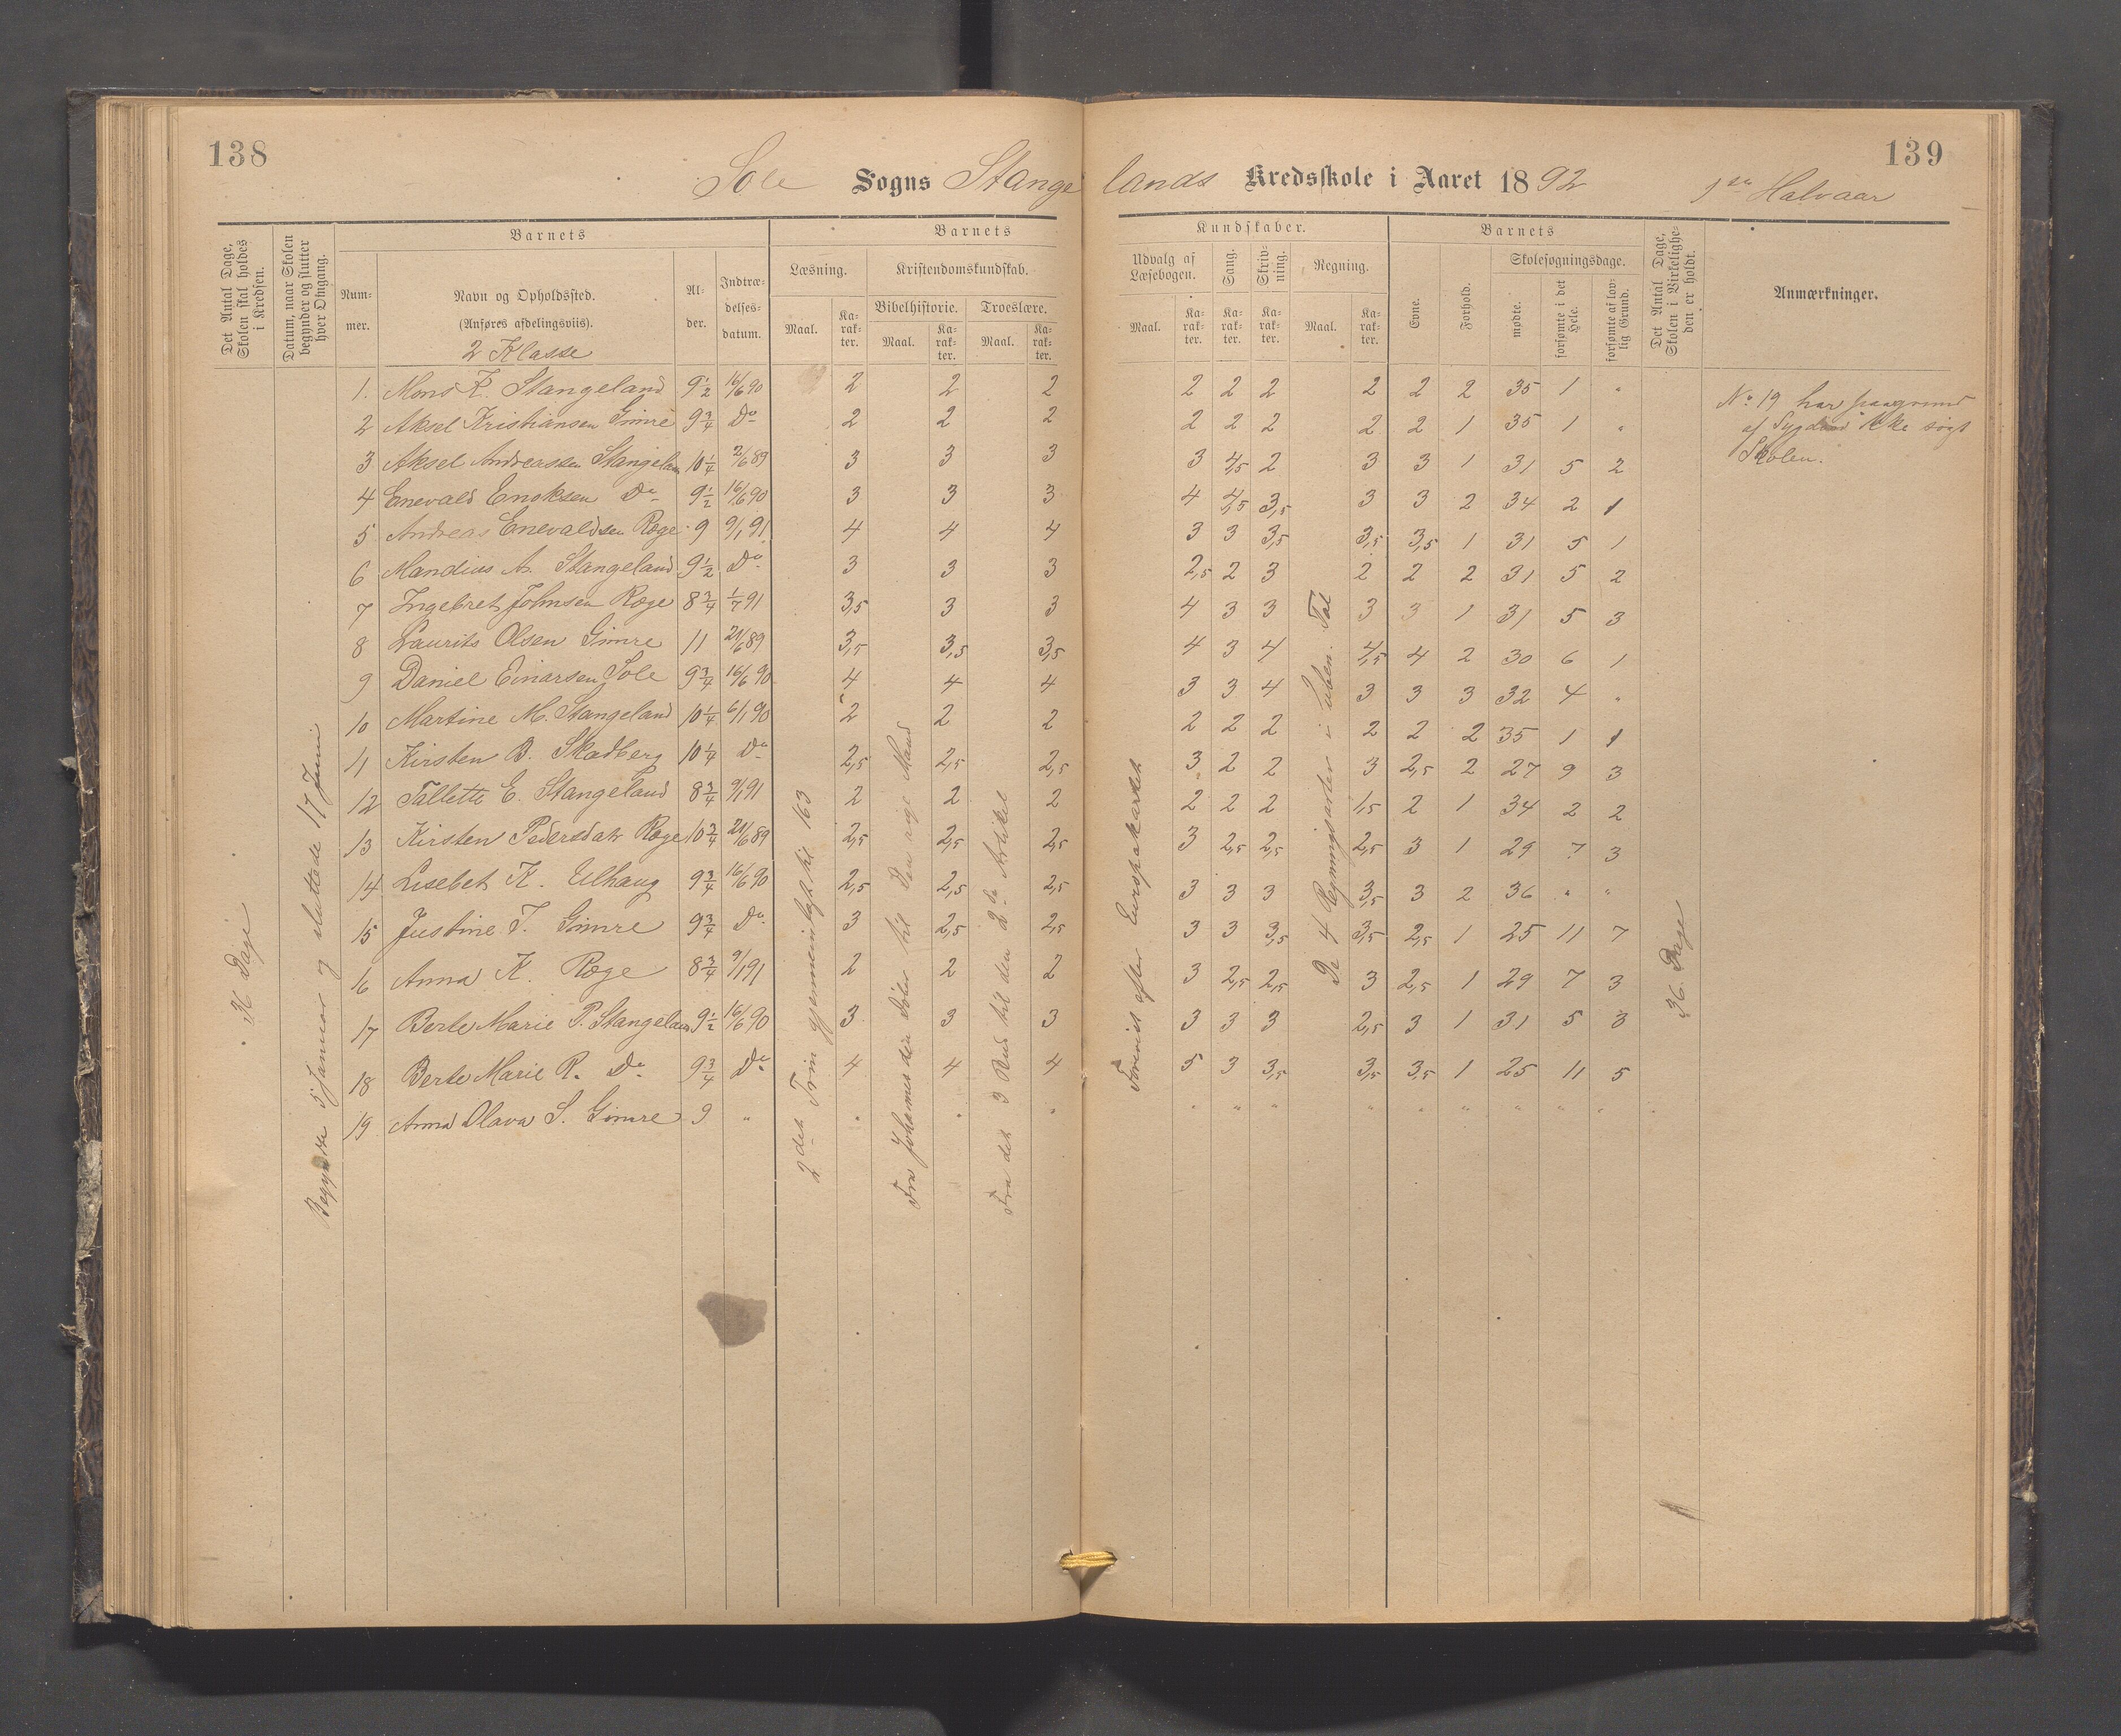 138
139
Sole Sogns Stangelands Kredsskole i Aaret 1892 1ste Halvaar
Det Antal Dage, Skolen skal holdes i Kredsen.
Datum, naar Skolen begynder og slutter hver Omgang.
Barnets
Barnets
Kundskaber.
Barnets
Det Antal Dage, Skolen i Virkeligheden er holdt.
Anmærkninger.
Nummer.
Navn og Opholdssted.
(Anføres afdelingsviis).
2 Klasse
Alder.
Indtrædelsesdatum.
Læsning.
Kristendomskundskab.
Bibelhistorie.
Troeslære.
Udvalg af Læsebogen.
Sang.
Skrivning.
Regning.
Evne.
Forhold.
Skolesøgningsdage.
Maal.
Karakter.
Maal.
Karakter.
Maal.
Karakter.
Maal.
Karakter.
Karakter.
Karakter.
Maal.
Karakter.
mødte.
forsømte i det Hele.
forsømte af lovlig Grund.
1. Mons K. Stangeland 9 1/2 16/6 90 2 2 2 2 2 2 2 2 2 35 1 "
2 Aksel Kristiansen Gimre 9 3/4 Do 2 2 2 2 2 2 2 2 1 35 1 "
3 Aksel Andreassen Stangeland 10 1/4 2/6 89 3 3 3 3 4,5 2 3 3 1 31 5 2
4 Enevald Enoksen Do 9 1/2 16/6 90 3 3 3 4 4,5 3,5 3 3 2 34 2 1
5 Andreas Enevaldsen Røge 9 9/1 91 4 4 4 3 3 3,5 3,5 3,5 1 31 5 1
6 Mandius A. Stangeland 9 1/2 Do 3 3 3 2,5 2 3 2 2 2 31 5 2
7 Ingebret Johnsen Røge 8 3/4 1/7 91 3,5 3 3 4 3 3 3 3 1 31 5 3
8 Laurits Olsen Gimre 11 21/6 89 3,5 3,5 3,5 4 3 4 4,5 4 2 30 6 1
9 Daniel Einarsen Sole 9 3/4 16/6 90 4 4 4 3 3 4 3 3 3 32 4 "
10 Martine M. Stangeland 10 1/4 6/1 90 2 2 2 2 2 2 2 2 2 35 1 1
11 Kirsten B. Skadberg 10 1/4 Do 2,5 2,5 2,5 3 2 2 3 2,5 2 27 9 3
12 Tallette E. Stangeland 8 3/4 9/1 91 2 2 2 2 2 2 1,5 2 1 34 2 2
13 Kirsten Pedersdatr Røge 10 3/4 21/6 89 2,5 2,5 2,5 3 2,5 2,5 2,5 3 1 29 7 3
14 Lisebet K. Ulhaug 9 3/4 16/6 90 2,5 2,5 2,5 3 3 3 3,5 3 2 36 " "
15 Justine T. Gimre 9 3/4 Do 3 2,5 2,5 3 3 3,5 3,5 2,5 1 25 11 7
16 Anna K. Røge 8 3/4 9/1 91 2 2 2 3 2,5 2,5 3 2,5 1 29 7 3
17 Berte Marie P. Stangeland 9 1/2 16/6 90 3 3 3 3 3 3 2,5 3 1 31 5 3
18 Berte Marie R. Do 9 3/4 Do 4 4 4 5 3 3,5 3,5 3,5 1 25 11 5
19 Anna Olava S. Gimre 9 " " " " " " " " " " " " "
36 Dage
Begyndte 5 Januar og sluttede 17 Juni
2det Trin gjennemlagt til 163
Fra Johannes den Døber til Den rige Mand
Fra det 3 Bud til den 2den Artikel
Forevist efter Europakartet
De 4 Regningsarter i Tal
36. Dage
No 19 har paagrund
af Sygdom ikke søgt
Skolen.